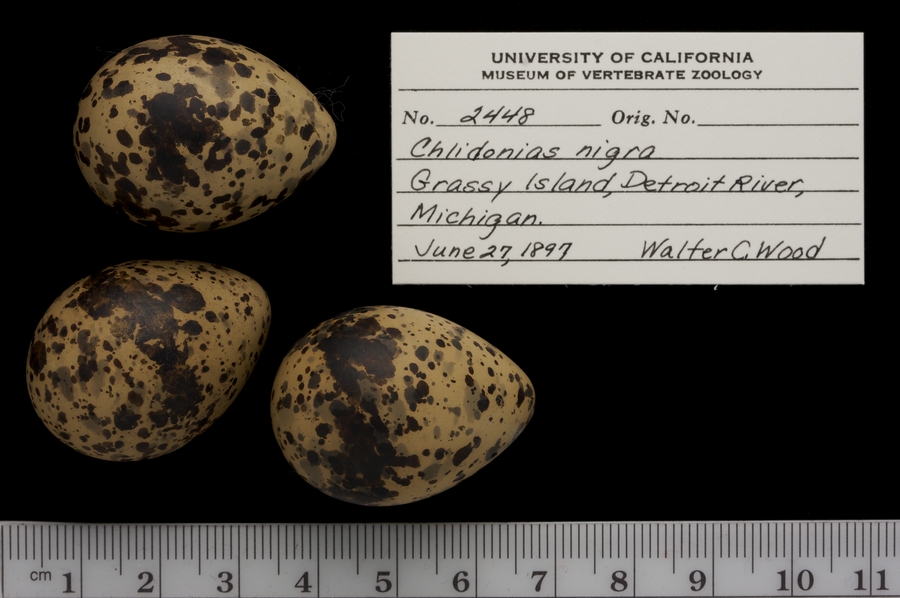 UNIVERSITY OF CALIFORNIA
MUSEUM OF VERTEBRATE ZOOLOGY
No. 2448 Orig. No.
Chlidonias nigra
Grassy Island, Detroit River,
Michigan.
June 27, 1897 Walter C. Wood
cm 1 2 3 4 5 6 7 8 9 10 11